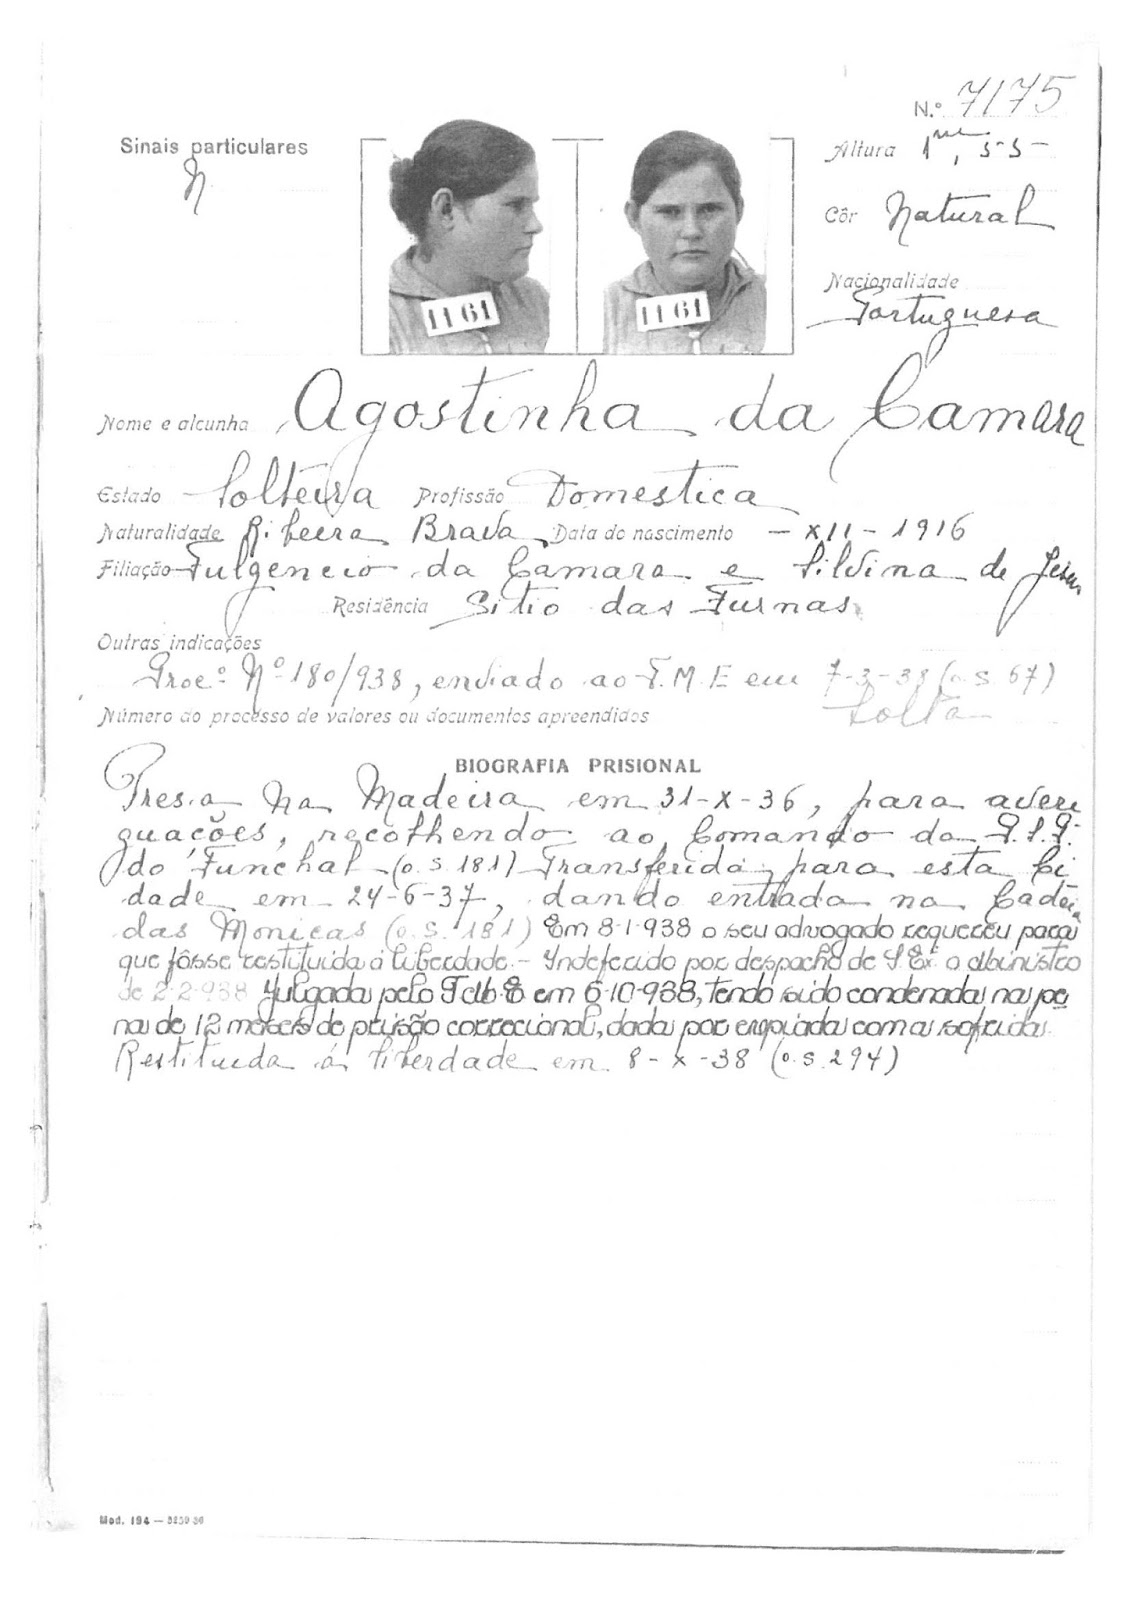 N.º 7175
Sinais particulares
N
Altura 1m, 55-
Côr Natural
Nacionalidade
Portuguesa
1161
1161
Nome e alcunha Agostinha da Camara
Estado Solteira Profissão Domestica
Naturalidade Ribeira Brava Data do nascimento -XII-1916
Filiação Fulgencio da Camara e Silvina de Jesus
Residência Sitio das Furnas
Outras indicações
Proc.º Nº 180/938, enviado ao T.M.E em 7-3-38 (o.s. 67)
Número do processo de valores ou documentos apreendidos Solta
BIOGRAFIA PRISIONAL
Presa na Madeira em 31-X-36, para averi
guações, recolhendo ao Comando da P.S.P.
do Funchal (o.s 181) Transferida para esta Ci
dade em 24-6-37, dando entrada na Cadeia
das Monicas (o.s. 181) Em 8-1-938 o seu advogado requereu para
que fôsse restituida á liberdade - Indeferido por despacho de S. Exª o Ministro
de 2-2-938 Julgada pelo T.M.E em 6-10-938, tendo sido condenada na pe
na de 12 meses de prisão correcional, dada por expiada com a sofrida.
Restituida á liberdade em 8-X-38 (o.s. 294)
Mod. 194 —